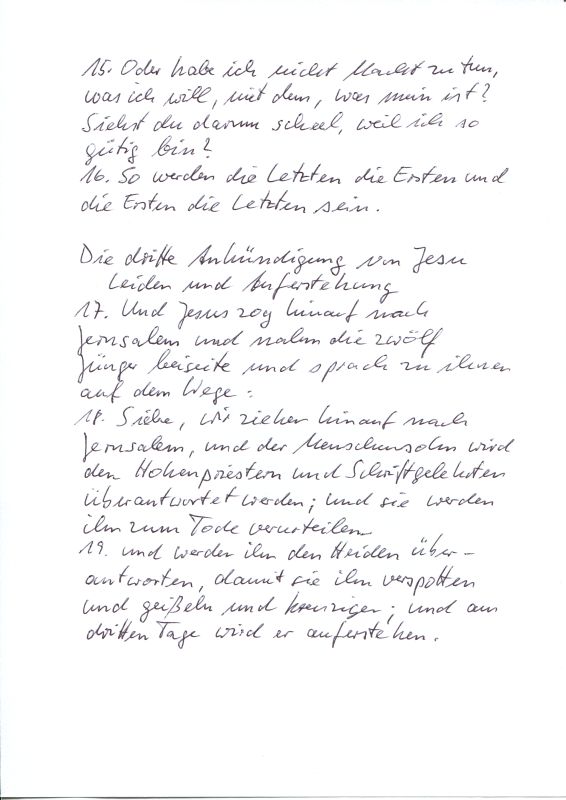 15. Oder habe ich nicht Macht zu tun,
was ich will, mit dem, was mein ist?
Siehst du darum scheel, weil ich so
gütig bin?
16. So werden die Letzten die Ersten und
die Ersten die Letzten sein.
Die dritte Ankündigung von Jesu
Leiden und Auferstehung
17. Und Jesus zog hinauf nach
Jerusalem und nahm die zwölf
Jünger beiseite und sprach zu ihnen
auf dem Wege:
18. Siehe, wir ziehen hinauf nach
Jerusalem, und der Menschensohn wird
den Hohenpriestern und Schriftgelehrten
überantwortet werden; und sie werden
ihn zum Tode verurteilen
19. und werden ihn den Heiden über-
antworten, damit sie ihn verspotten
und geißeln und kreuzigen; und am
dritten Tage wird er auferstehen.